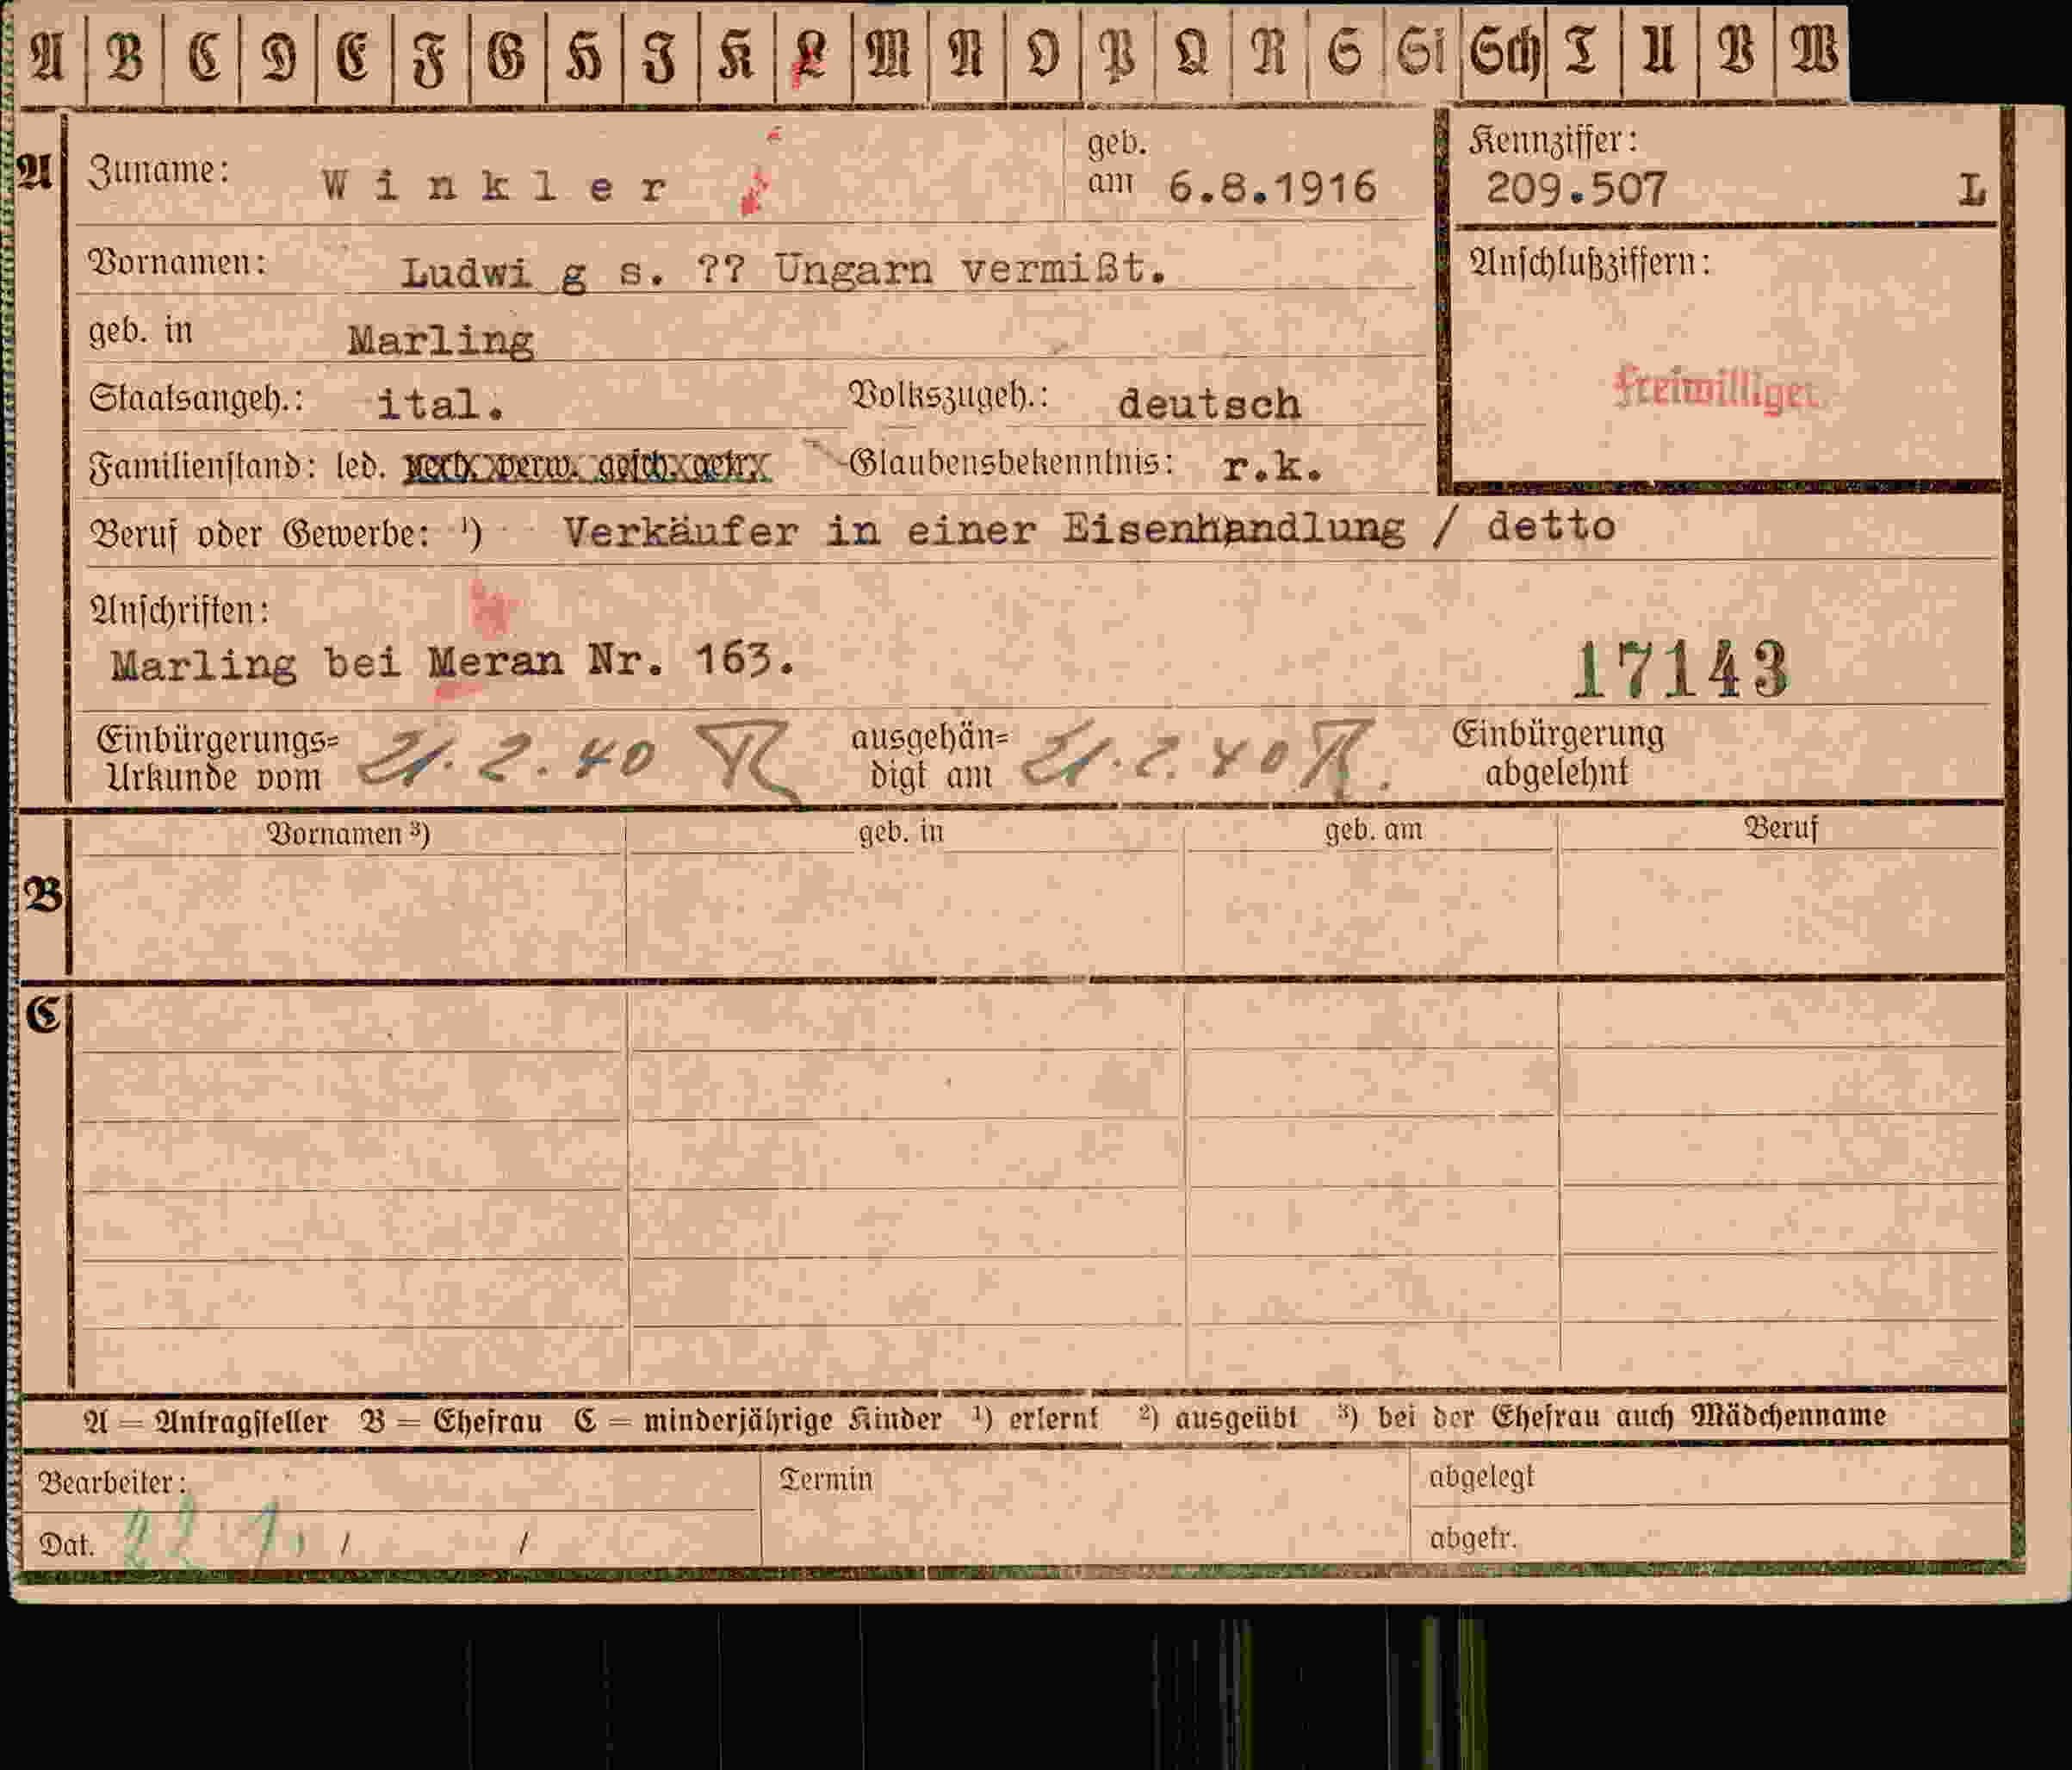 A B C D E F G H I K L M N O P Q R S St Sch T U V W
A Zuname: Winkler geb. am 6.8.1916 Kennziffer: 209.507 L
Vornamen: Ludwi g s. ?? Ungarn vermißt. Anschlußziffern:
geb. in Marling
Freiwilliger
Staatsangeh.: ital. Volkszugeh.: deutsch
Familienstand: led. verh. verw. gesch. getr. Glaubensbekenntnis: r.k.
Beruf oder Gewerbe: ¹) Verkäufer in einer Eisenhandlung / detto
Anschriften:
Marling bei Meran Nr. 163. 17143
Einbürgerungs= Urkunde vom 21.2.40 ausgehän= digt am 21.2.40 Einbürgerung abgelehnt
Vornamen ³) geb. in geb. am Beruf
B
C
A = Antragsteller B = Ehefrau C = minderjährige Kinder ¹) erlernt ²) ausgeübt ³) bei der Ehefrau auch Mädchenname
Bearbeiter: Termin abgelegt
Dat. / / abgetr.